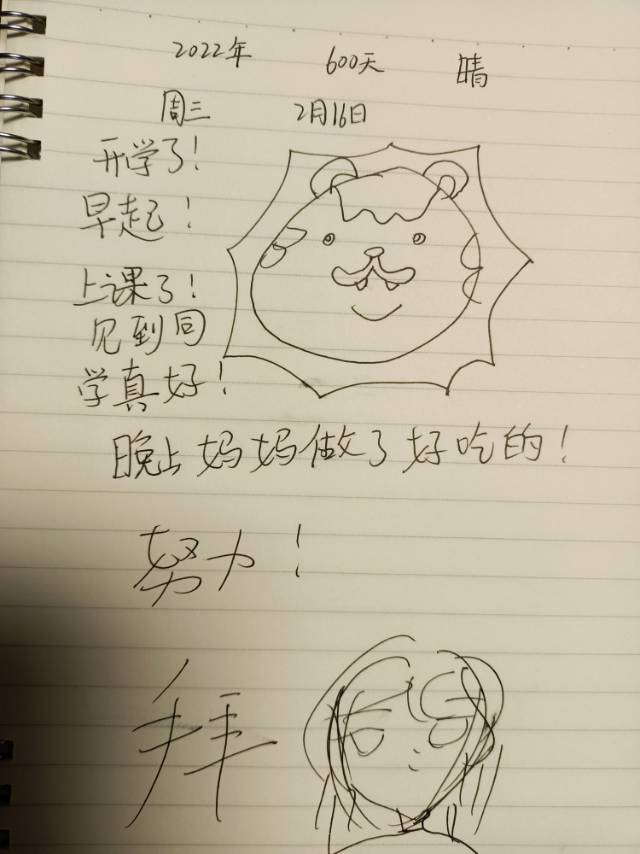 2022年 600天 晴
周三 2月16日
开学了!
早起!
上课了!
见到同
学真好!
晚上妈妈做了好吃的!
努力!
拜